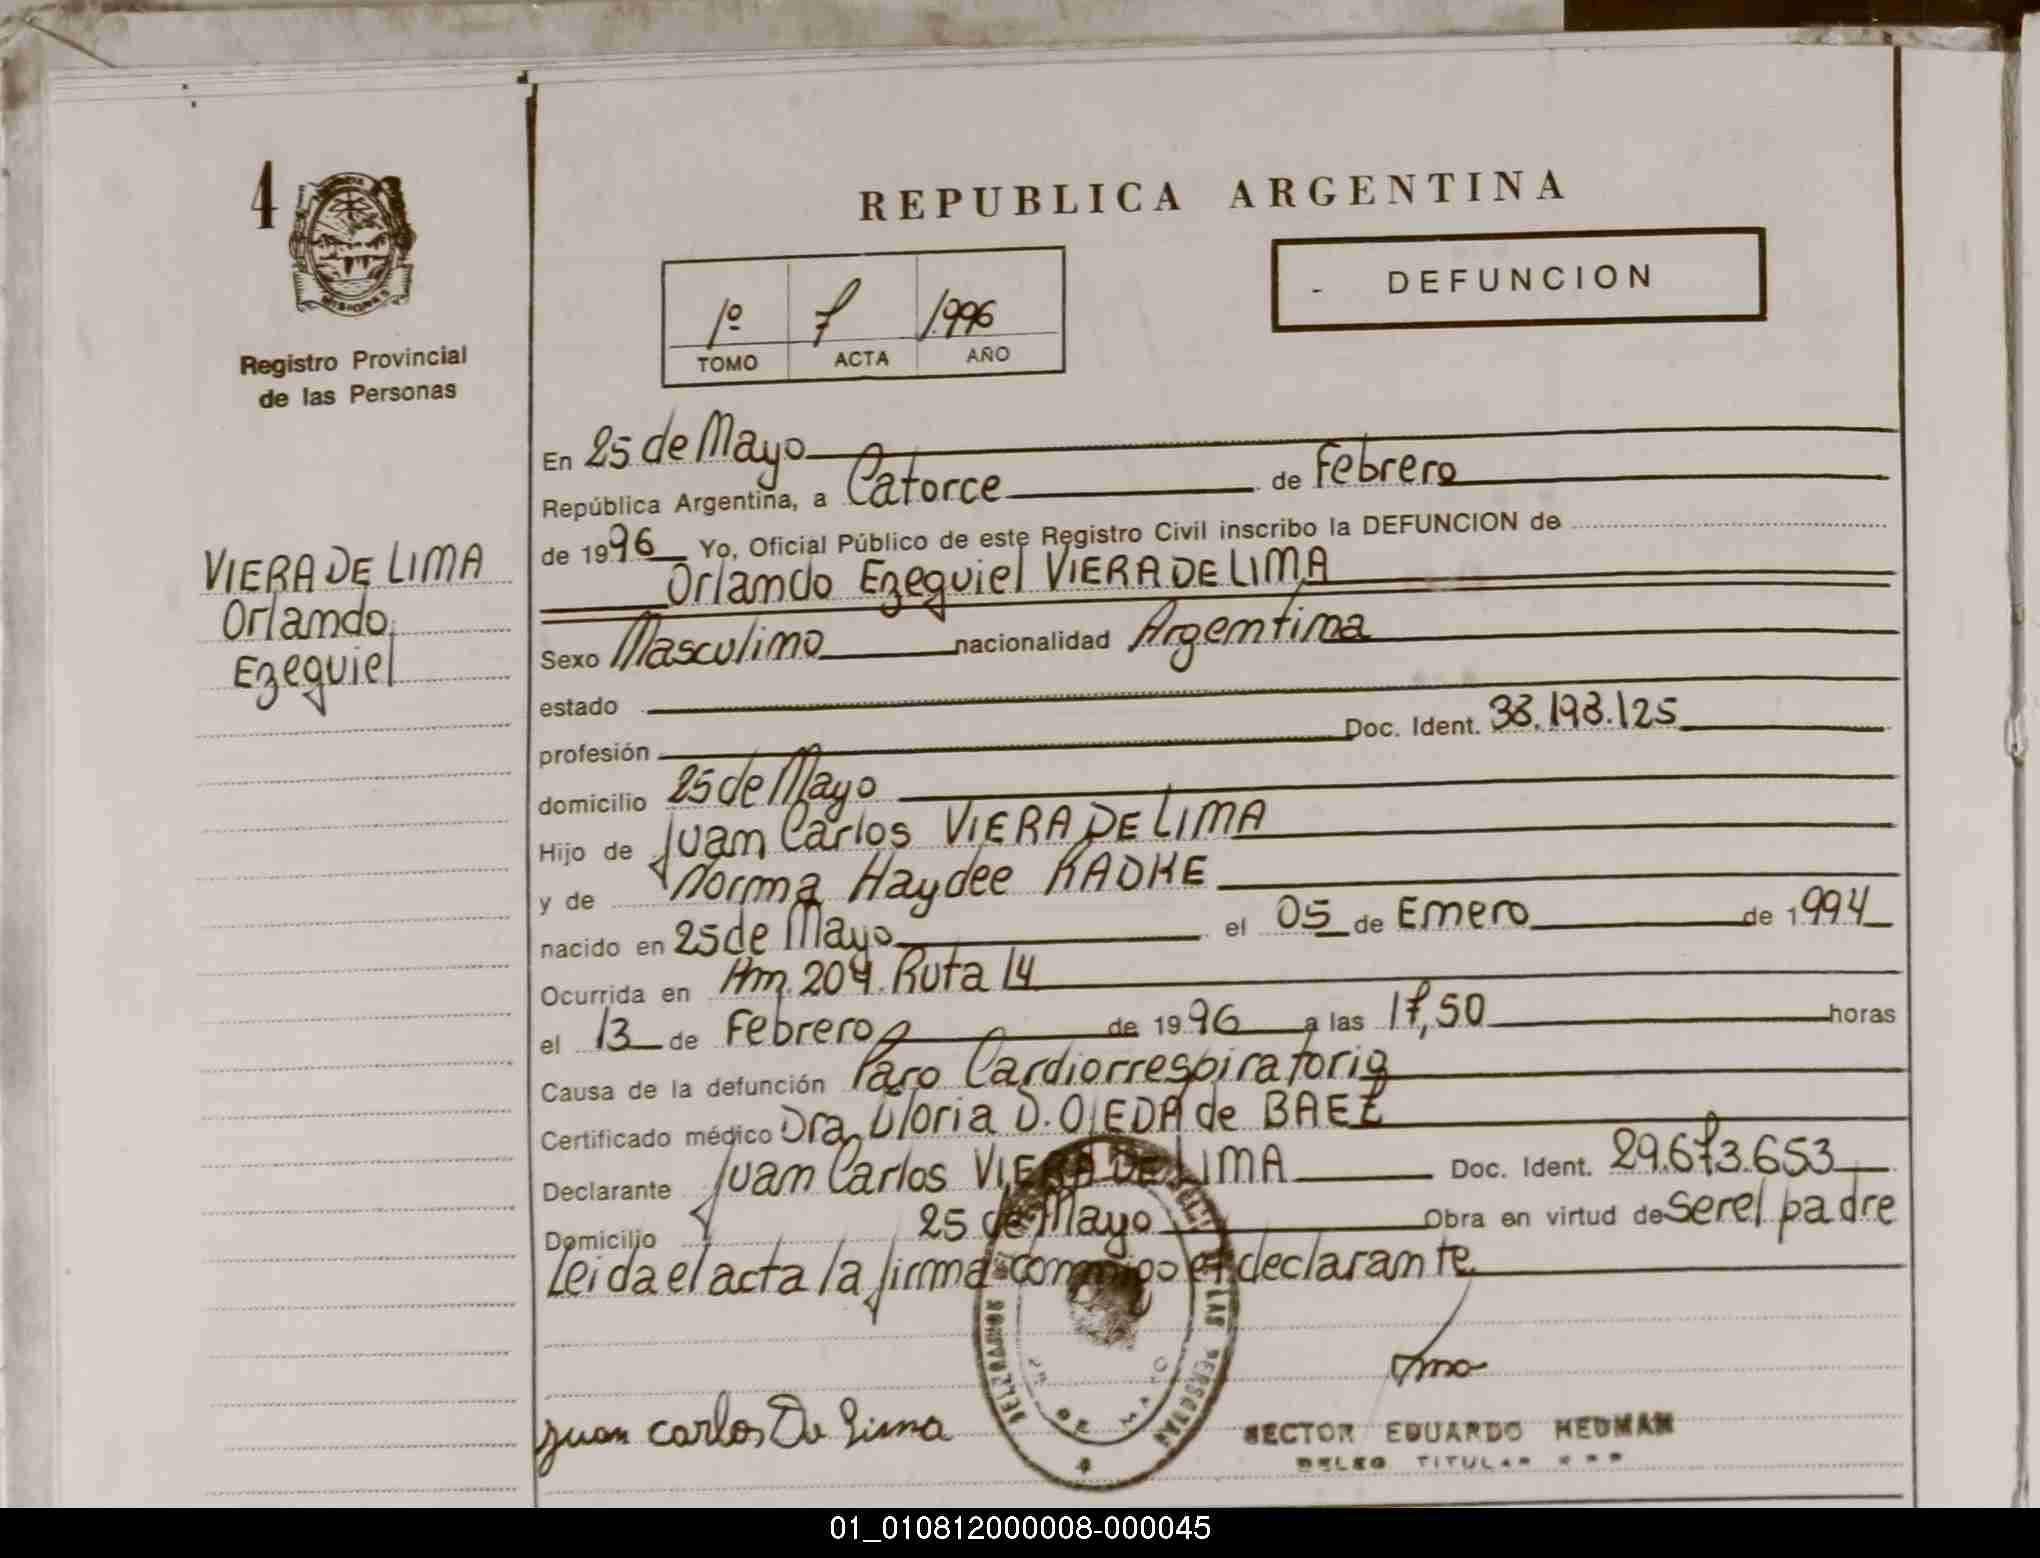 4
Registro Provincial
de las Personas
VIERA DE LIMA
Orlando
Ezequiel
REPUBLICA ARGENTINA
1º 7 1996
TOMO ACTA AÑO
- DEFUNCION
En 25 de Mayo
República Argentina, a Catorce de Febrero
de 1996 Yo, Oficial Público de este Registro Civil inscribo la DEFUNCION de
Orlando Ezequiel VIERA DE LIMA
Sexo Masculino nacionalidad Argentina
estado
profesión Doc. Ident. 38.198.125
domicilio 25 de Mayo
Hijo de Juan Carlos VIERA DE LIMA
y de Norma Haydee RADKE
nacido en 25 de Mayo el 05 de Enero de 1994
Ocurrida en Km. 204. Ruta 14
el 13 de Febrero de 1996 a las 17,50 horas
Causa de la defunción Paro Cardiorrespiratorio
Certificado médico Dra. Gloria D. OJEDA de BAEZ
Declarante Juan Carlos VIERA DE LIMA Doc. Ident. 29.673.653
Domicilio 25 de Mayo Obra en virtud de ser el padre
Leida el acta la firma conmigo el declarante
DE MAYO
LAS PERSONAS
4
Juan Carlos De Lima
HECTOR EDUARDO HEDMAN
DELEG TITULAR
01_010812000008-000045